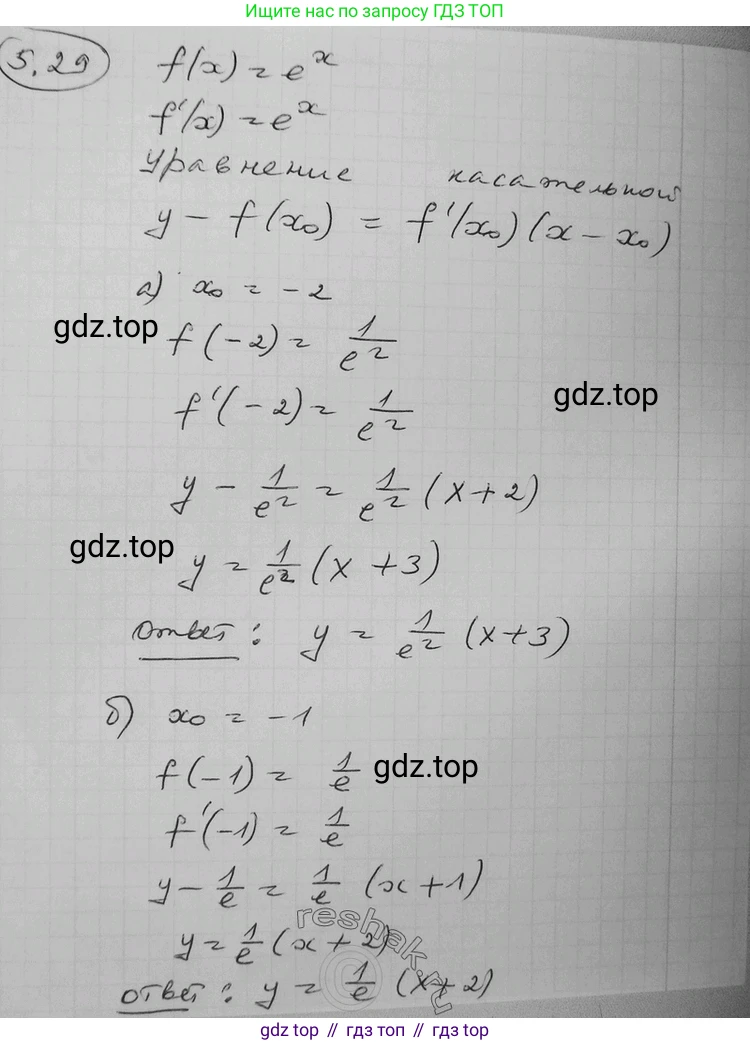 Ищите нас по запросу ГДЗ ТОП
5.29
f(x) = e^x
f'(x) = e^x
Уравнение касательной
y - f(x₀) = f'(x₀)(x - x₀)
а) x₀ = -2
gdz.top
f(-2) = 1/e²
gdz.top
f'(-2) = 1/e²
y - 1/e² = 1/e² (x+2)
gdz.top
y = 1/e² (x + 3)
Ответ: y = 1/e² (x+3)
б) x₀ = -1
f(-1) = 1/e
gdz.top
f'(-1) = 1/e
y - 1/e = 1/e (x+1)
reshak.ru
y = 1/e (x+2)
ответ: y = 1/e (x+2)
gdz.top // гдз топ // гдз top